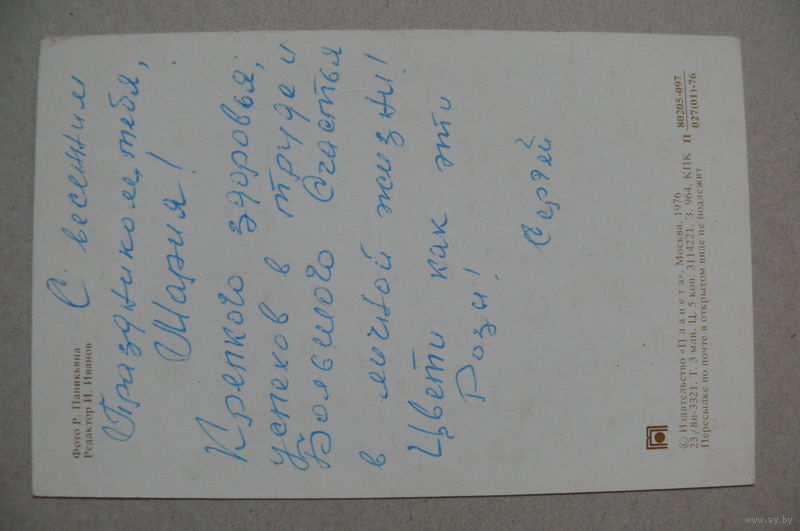 Фото Р. Папикьяна
Редактор И. Иванов
С весенним
Праздником, тебя,
Мария!
Крепкого здоровья,
успехов в труде и
Большого Счастья
в личной жизни!
Цвети как эти
Розы!
Сергей
© Издательство «Планета». Москва, 1976
23/8п-3321. Т. 3 млн. Ц. 5 коп. 3114221. З. 964. КПК П 80205-097
027(01)-76
Пересылке по почте в открытом виде не подлежит
www.ay.by